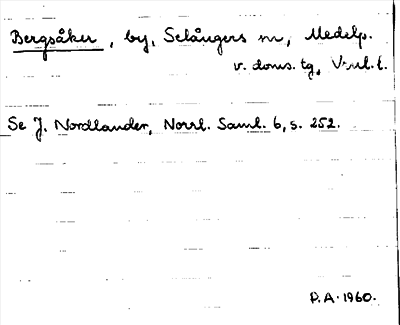 Bergsåker, by, Selångers sn, Medelp.
v. doms. tg,
Se J. Nordlander, Norrl. Saml. 6, s. 252.
P.A. 1960.